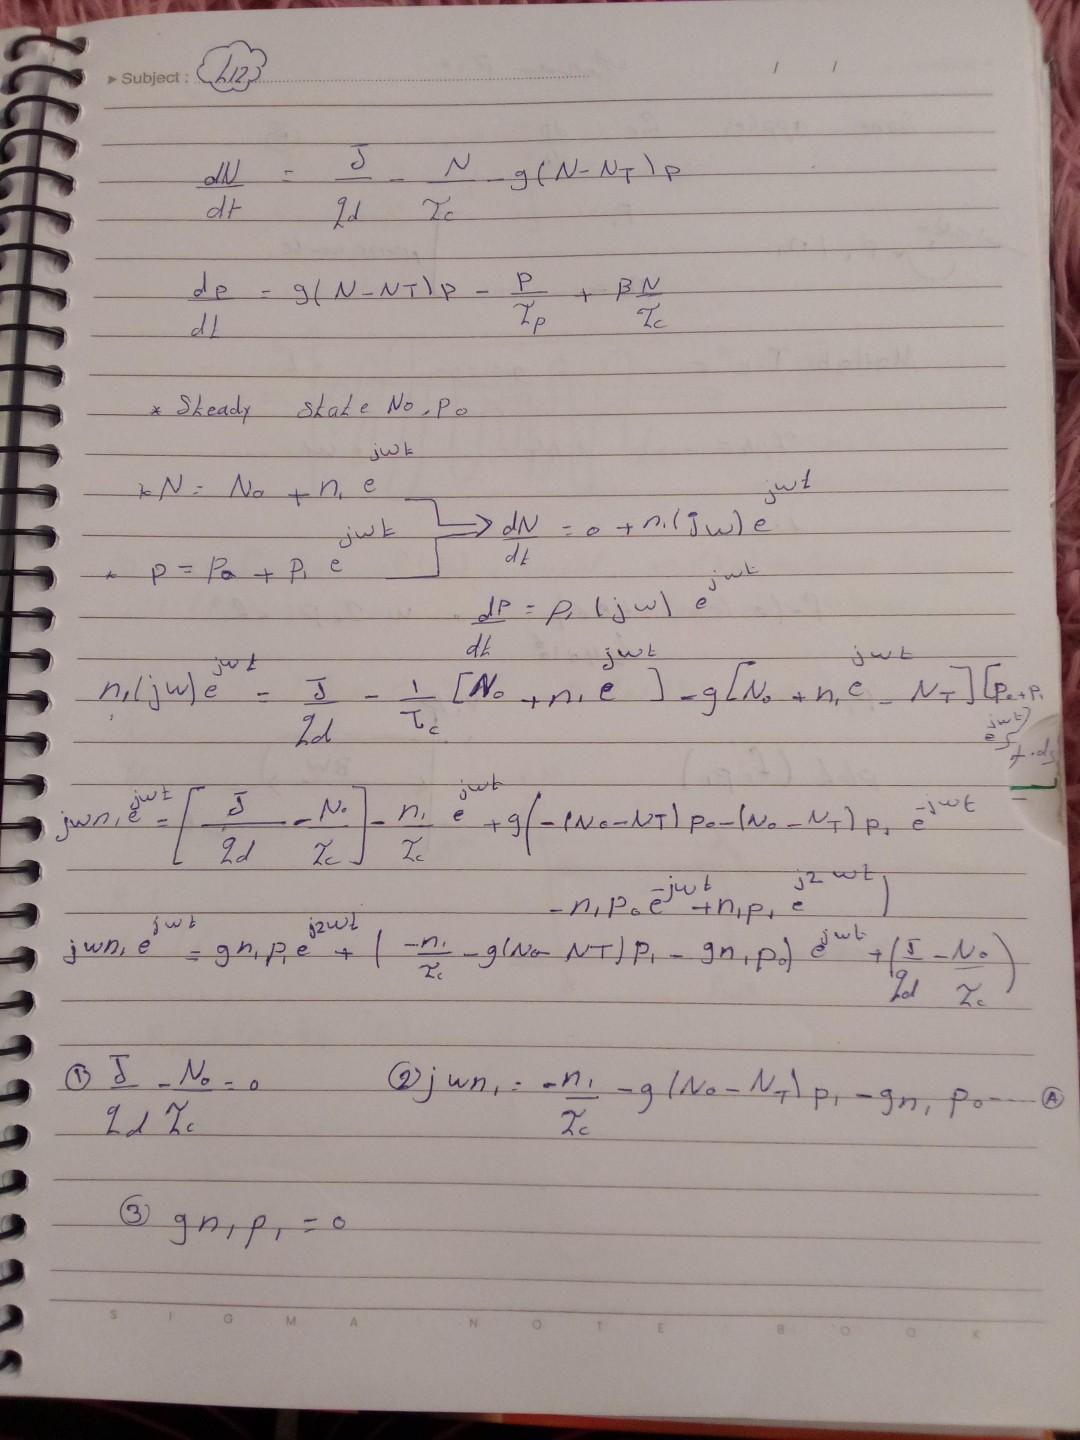 Subject : L12 / /
dN/dt = J/qd - N/τc - g(N-NT)p
dp/dt = g(N-NT)p - p/τp + βN/τc
* Steady State No, Po
* N = No + n1 e^jwt
* p = po + p1 e^jwt ⇒ dN/dt = 0 + n1(jw) e^jwt
dp/dt = p1 (jw) e^jwt
n1(jw)e^jwt = J/qd - 1/τc [No + n1 e^jwt] - g[No + n1 e^jwt - NT] [po + p1 e^jwt]
jwn1 e^jwt = [J/qd - No/τc] - n1/τc e^jwt + g(-(No-NT)po-(No-NT)p1 e^-jwt
-n1po e^-jwt + n1p1 e^j2wt)
jwn1 e^jwt = gn1p1e^j2wt + (-n1/τc - g(No-NT)p1 - gn1po) e^jwt + (J/qd - No/τc)
① J/qd - No/τc = 0 ② jwn1 = -n1/τc - g(No-NT)p1 - gn1 po --- Ⓐ
③ gn1p1 = 0
SIGMA NOTE BOOK